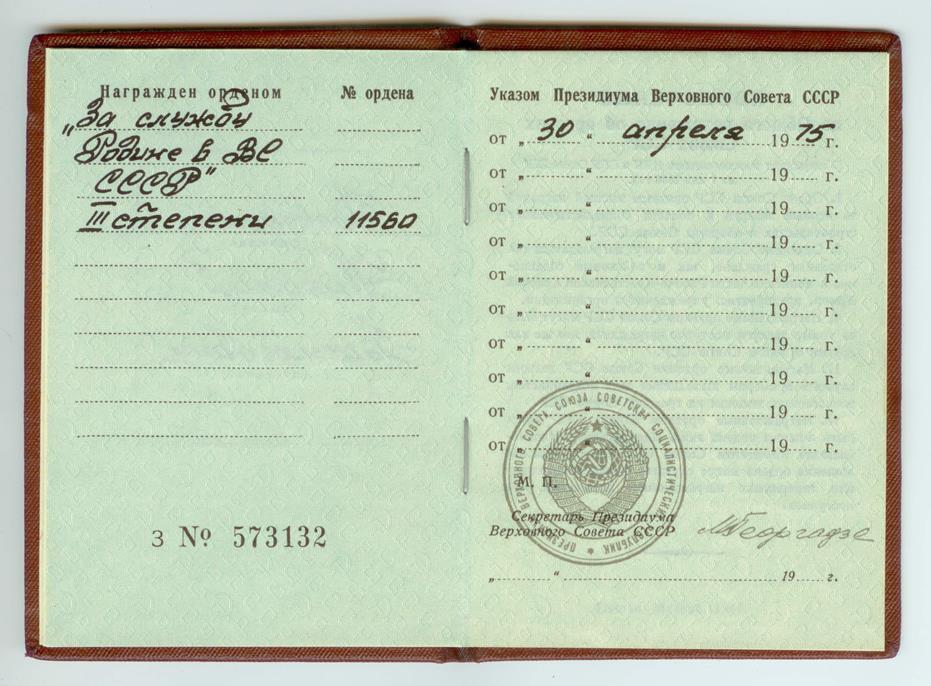 Награжден орденом
№ ордена
„За службу
Родине в ВС
СССР"
III степени
11560
З № 573132
Указом Президиума Верховного Совета СССР
от „ 30 “ апреля 1975 г.
от „ “ 19 г.
от „ “ 19 г.
от „ “ 19 г.
от „ “ 19 г.
от „ “ 19 г.
от „ “ 19 г.
от „ “ 19 г.
от „ “ 19 г.
от „ “ 19 г.
ПРЕЗИДИУМ ВЕРХОВНОГО СОВЕТА СОЮЗА СОВЕТСКИХ СОЦИАЛИСТИЧЕСКИХ РЕСПУБЛИК
М. П.
Секретарь Президиума
Верховного Совета СССР
МГеоргадзе
„ “ 19 г.